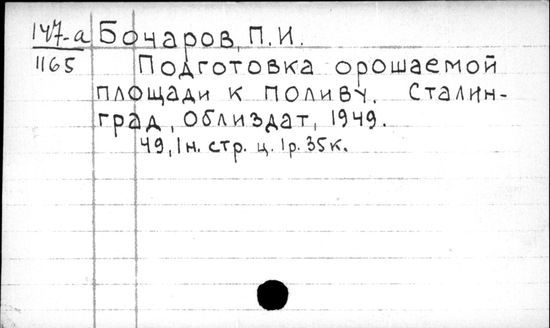 147-а Бочаров, П.И.
1165 Подготовка орошаемой
площади к поливу. Сталин-
град, Облиздат, 1949.
49, 1н. стр. ц. 1р. 35к.